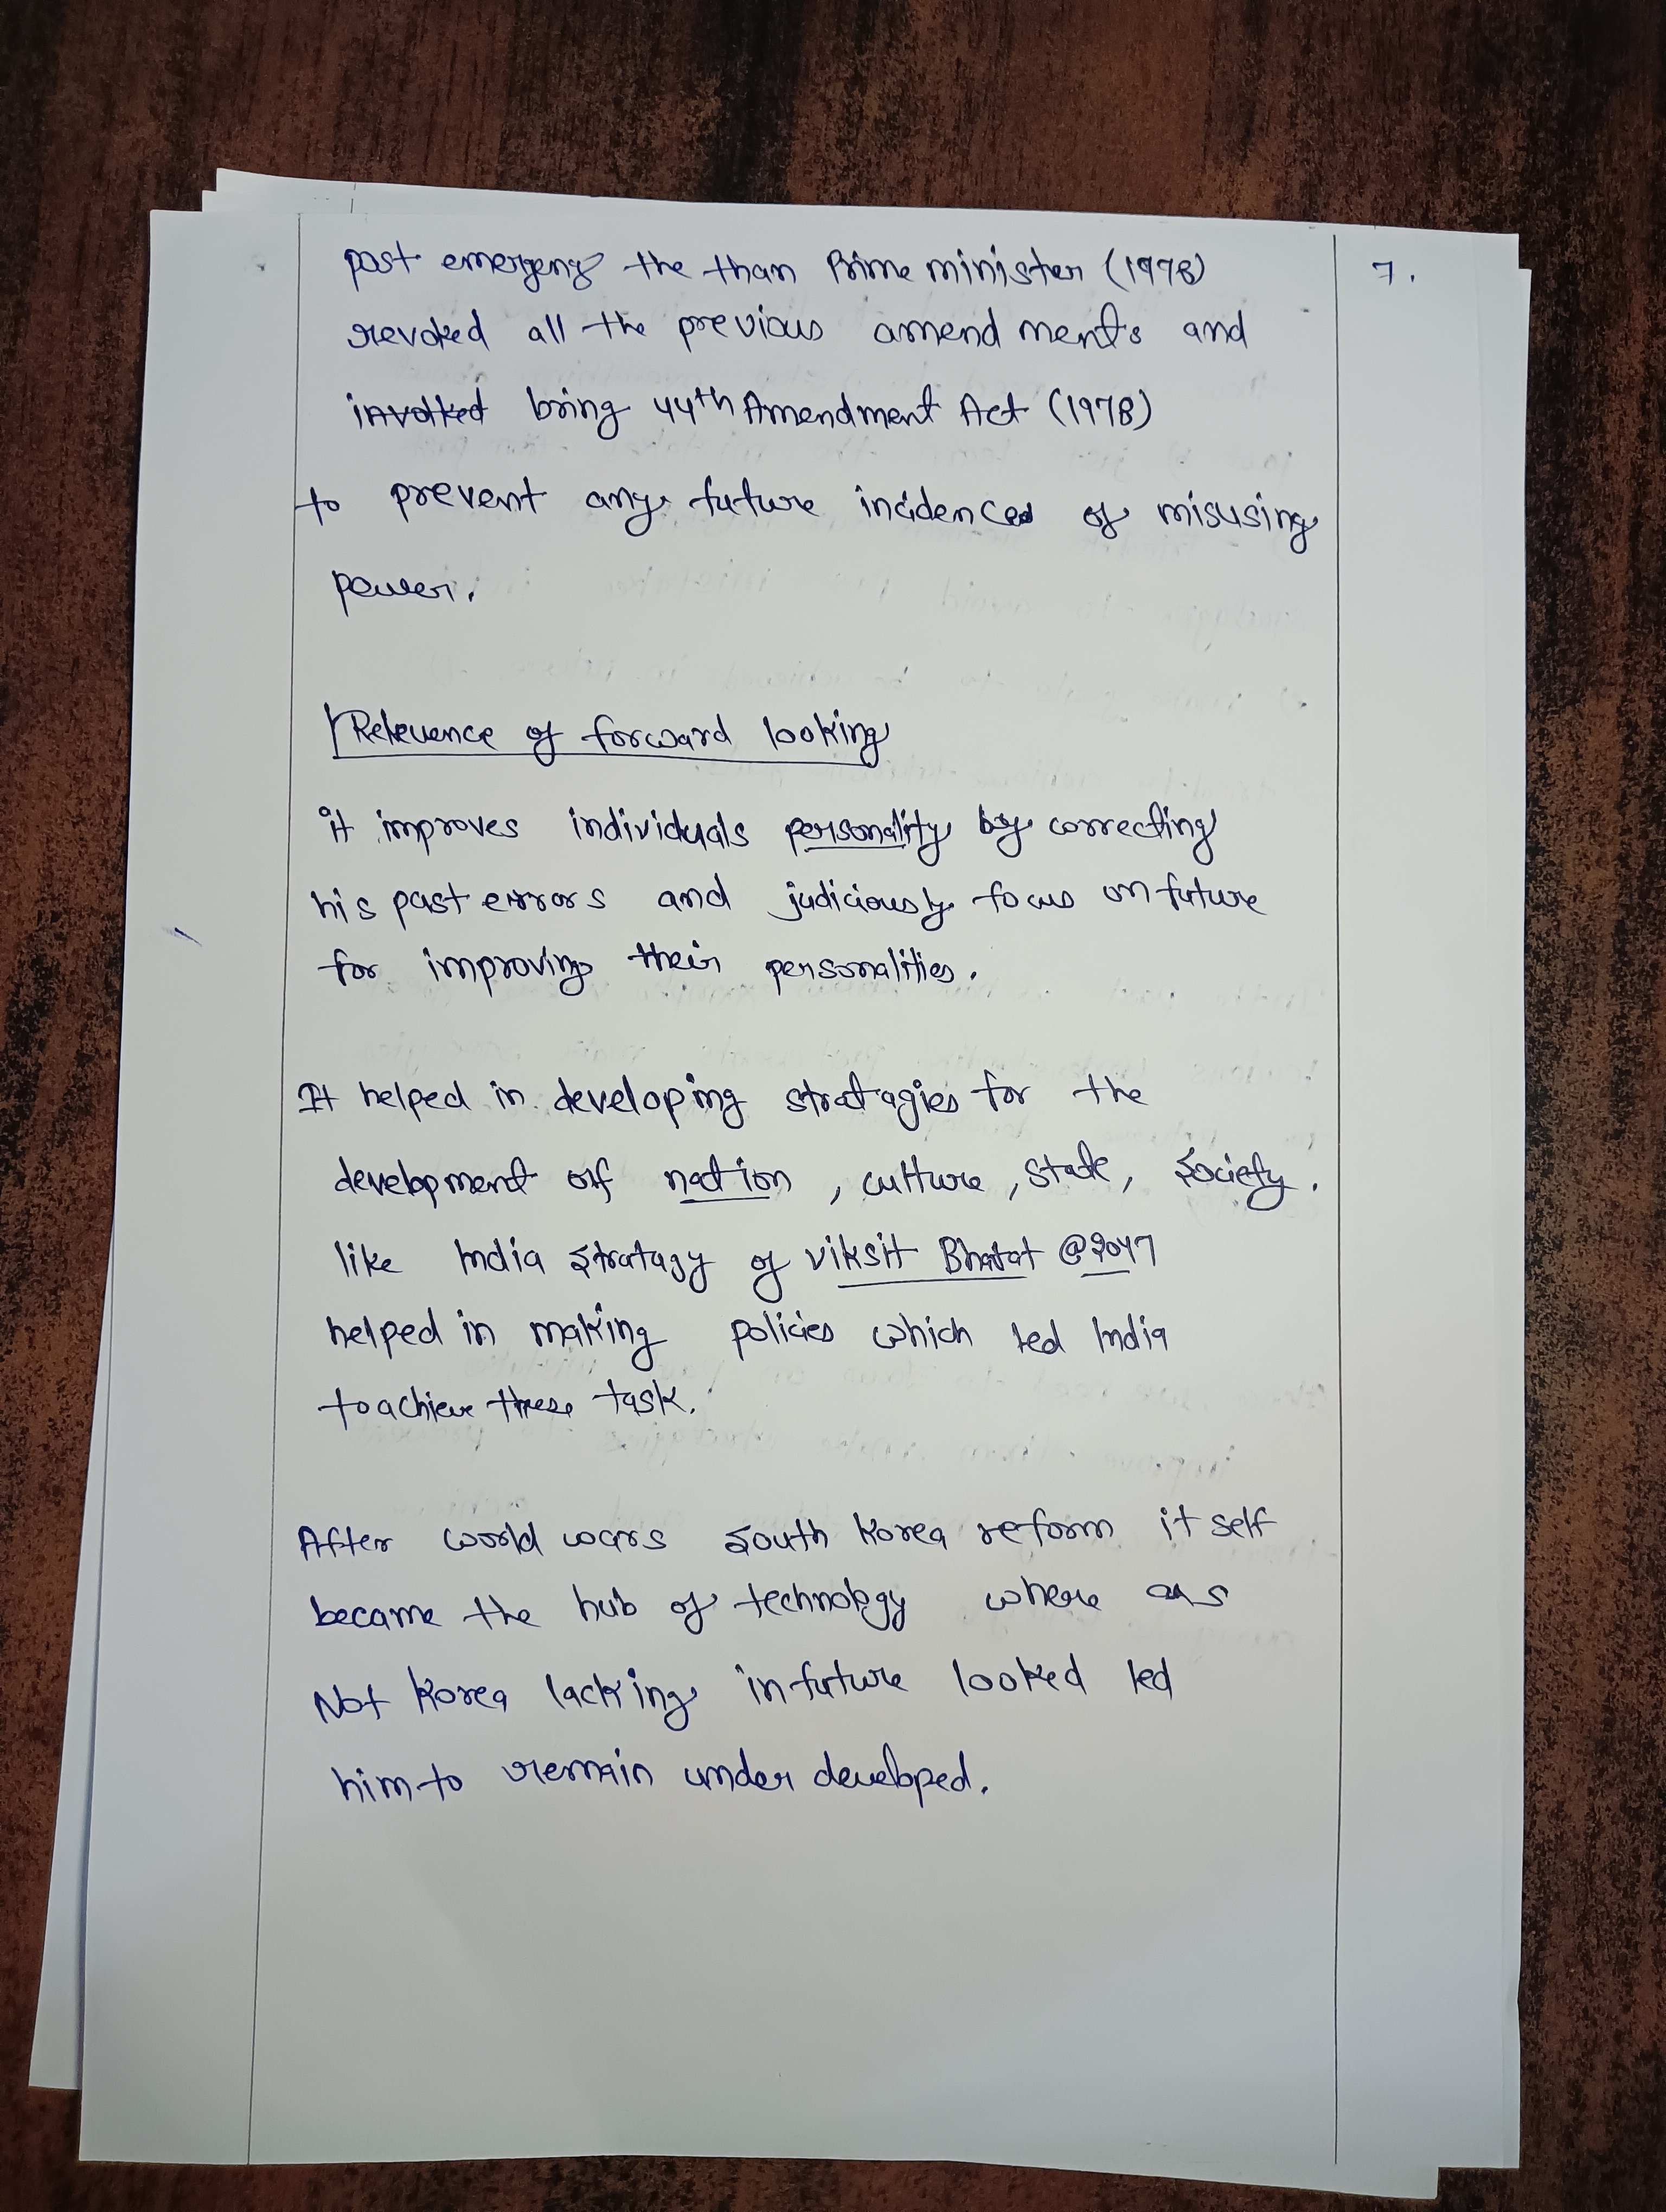 post emergency the than Prime minister (1978)
7.
revoked all the previous amendments and
invoked bring 44th Amendment Act (1978)
to prevent any future incidences of misusing
power.
Relevence of forward looking
it improves individuals personality by correcting
his past errors and judiciously focus on future
for improving their personalities.
It helped in developing stratagies for the
development of nation, culture, state, society.
like India stratagy of viksit Bharat @2047
helped in making policies which led India
to achieve these task.
After world wars south Korea reform it self
became the hub of technology where as
Not Korea lacking in future looked led
him to remain under developed.